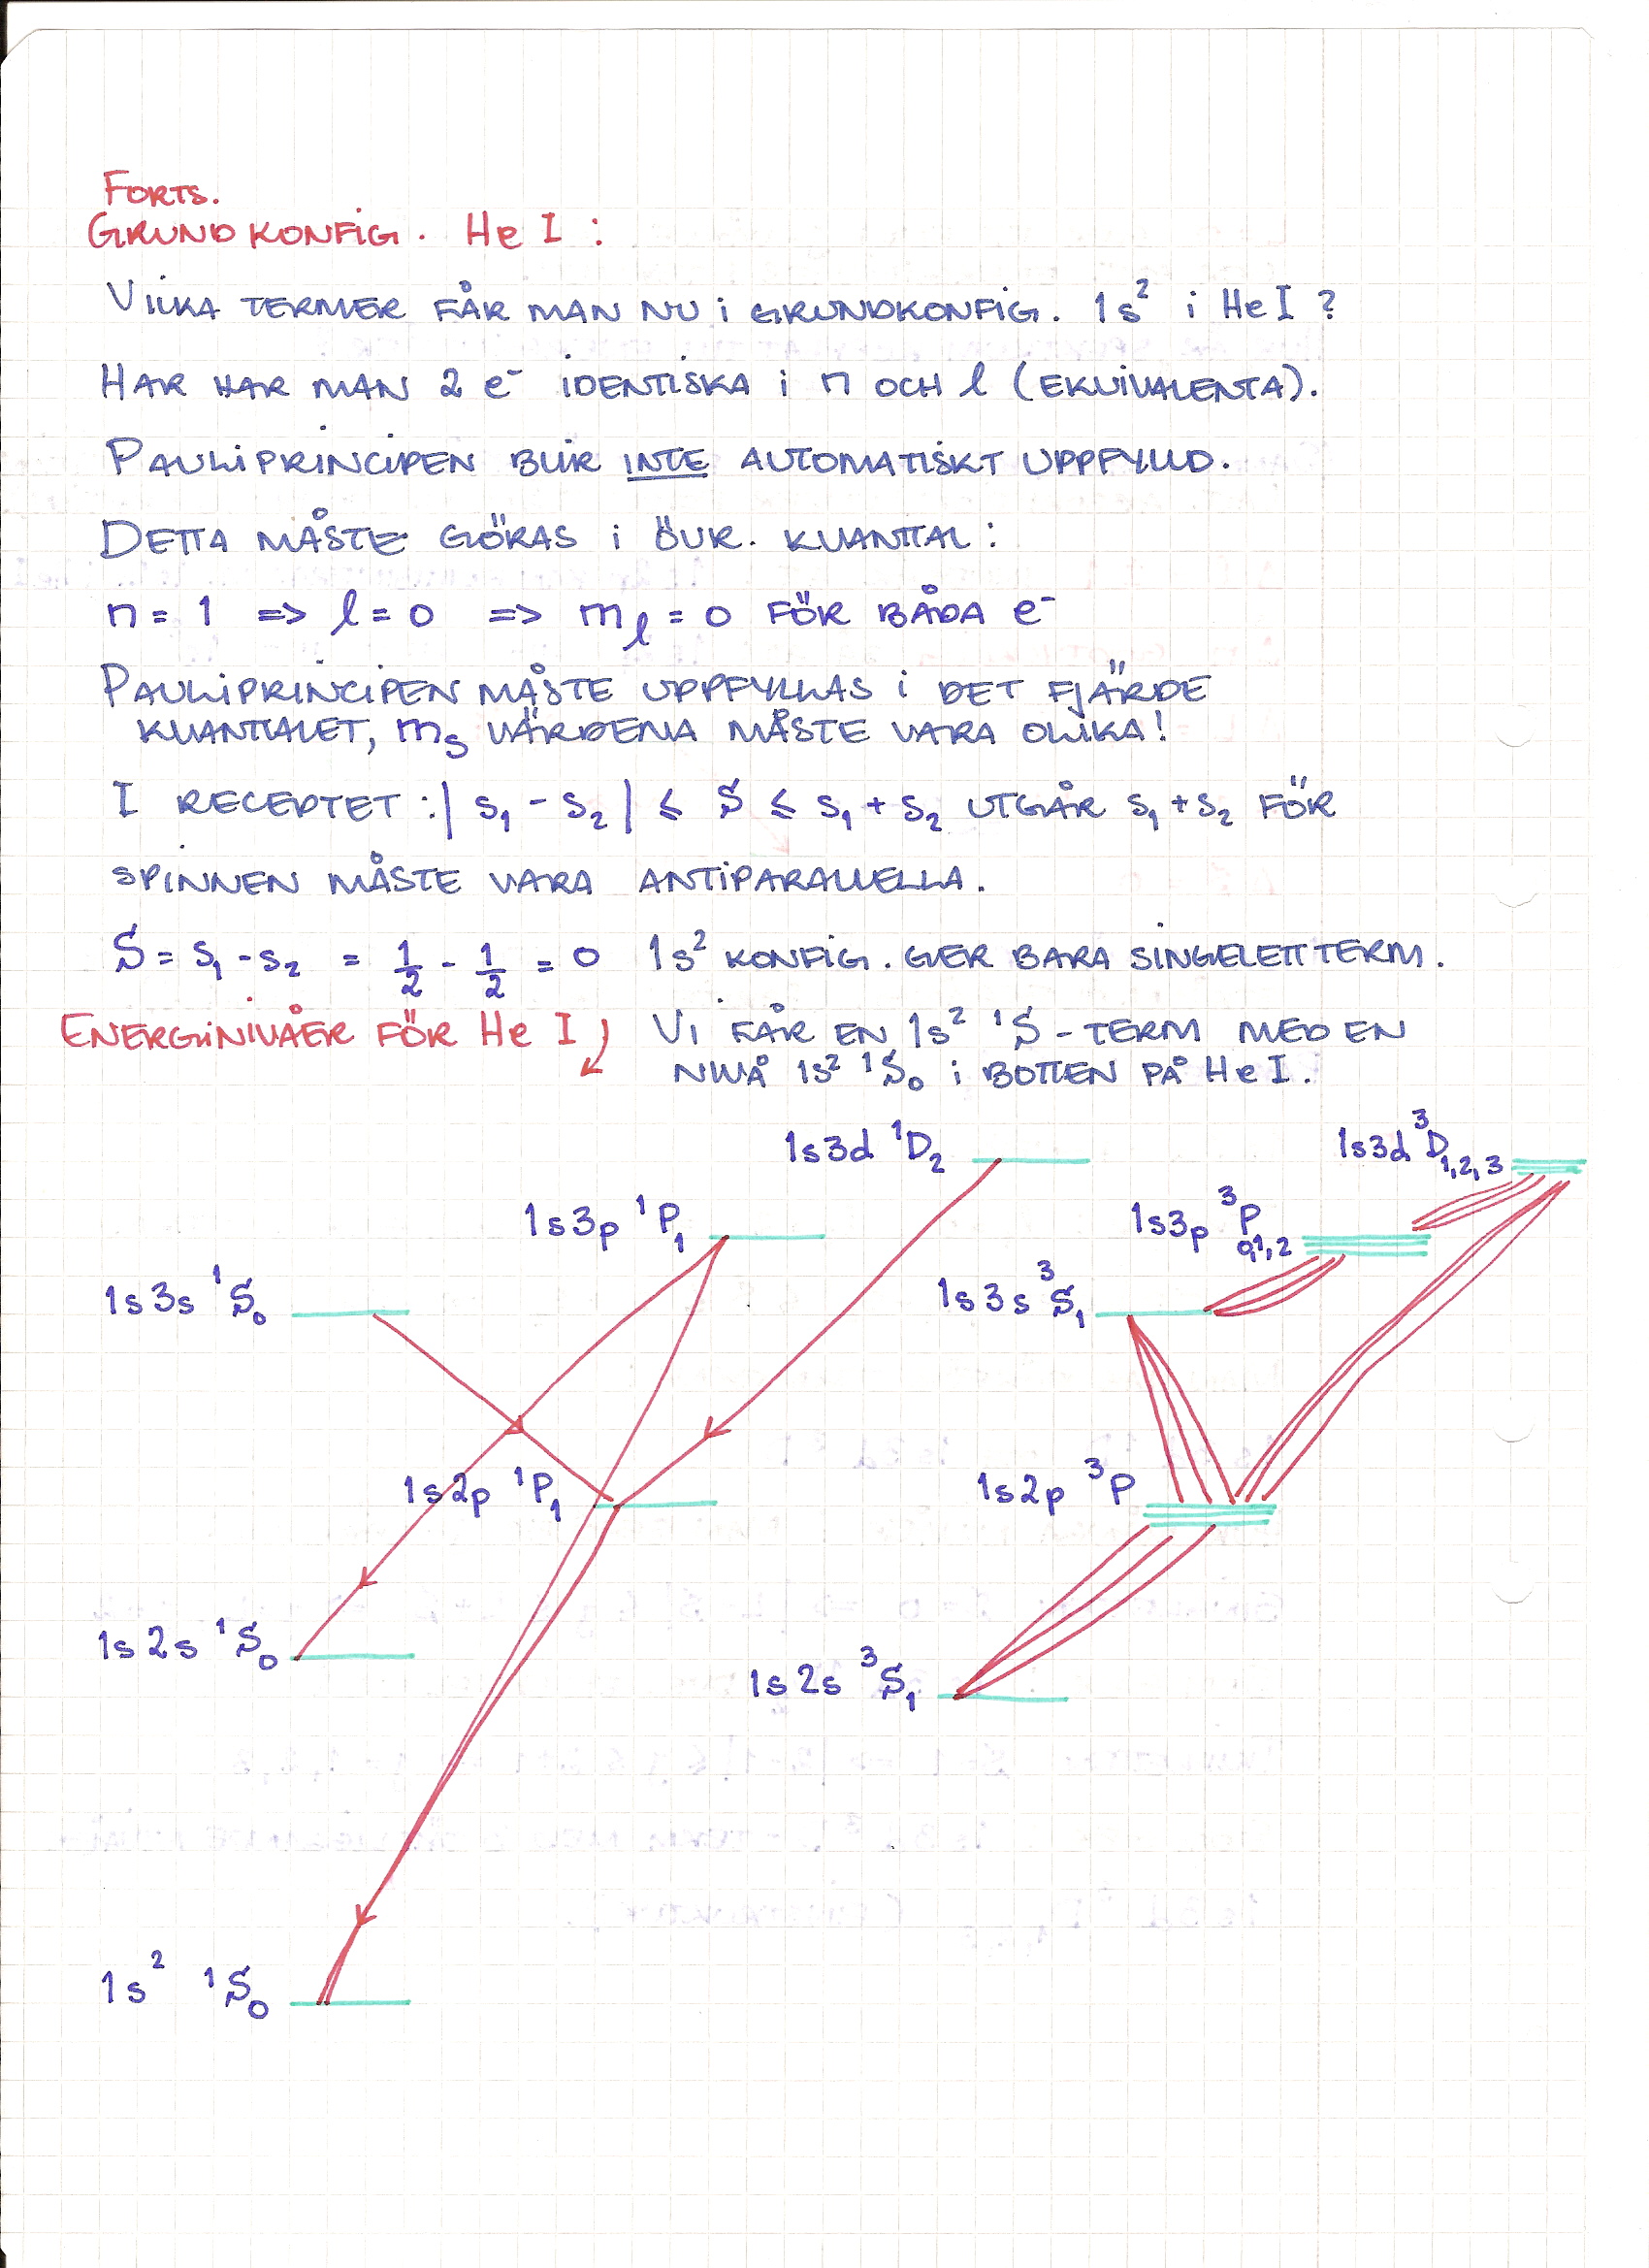 FORTS.
GRUNDKONFIG. He I :
VILKA TERMER FÅR MAN NU I GRUNDKONFIG. 1s² i He I ?
HAR HAR MAN 2 e⁻ IDENTISKA I n OCH l (EKVIVALENTA).
PAULIPRINCIPEN BLIR INTE AUTOMATISKT UPPFYLLD.
DETTA MÅSTE GÖRAS I ÖVR. KVANTTAL :
n = 1 => l = 0 => m_l = 0 FÖR BÅDA e⁻
PAULIPRINCIPEN MÅSTE UPPFYLLAS I DET FJÄRDE
KVANTTALET, m_s VÄRDENA MÅSTE VARA OLIKA!
I RECEPTET : | s₁ - s₂ | ≤ S ≤ s₁ + s₂ UTGÅR s₁ + s₂ FÖR
SPINNEN MÅSTE VARA ANTIPARALLELLA.
S = s₁ - s₂ = 1/2 - 1/2 = 0 1s² KONFIG. GER BARA SINGELETTTERM.
ENERGINIVÅER FÖR He I VI FÅR EN 1s² ¹S - TERM MED EN
NIVÅ 1s² ¹S₀ i BOTTEN PÅ He I.
1s3d ¹D₂ 1s3d ³D₁,₂,₃
1s3p ¹P₁ 1s3p ³P₀,₁,₂
1s3s ¹S₀ 1s3s ³S₁
1s2p ¹P₁ 1s2p ³P
1s2s ¹S₀ 1s2s ³S₁
1s² ¹S₀